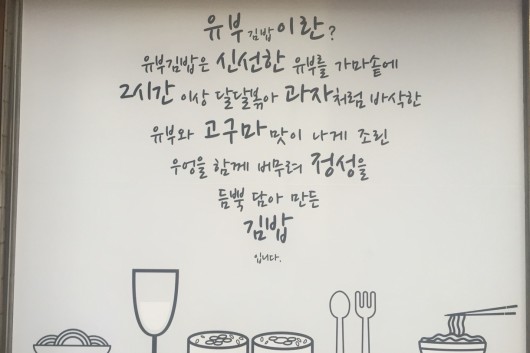 유부김밥이란?
유부김밥은 신선한 유부를 가마솥에
2시간 이상 달달볶아 과자처럼 바삭한
유부와 고구마 맛이 나게 조린
우엉을 함께 버무려 정성을
듬뿍 담아 만든
김밥
입니다.